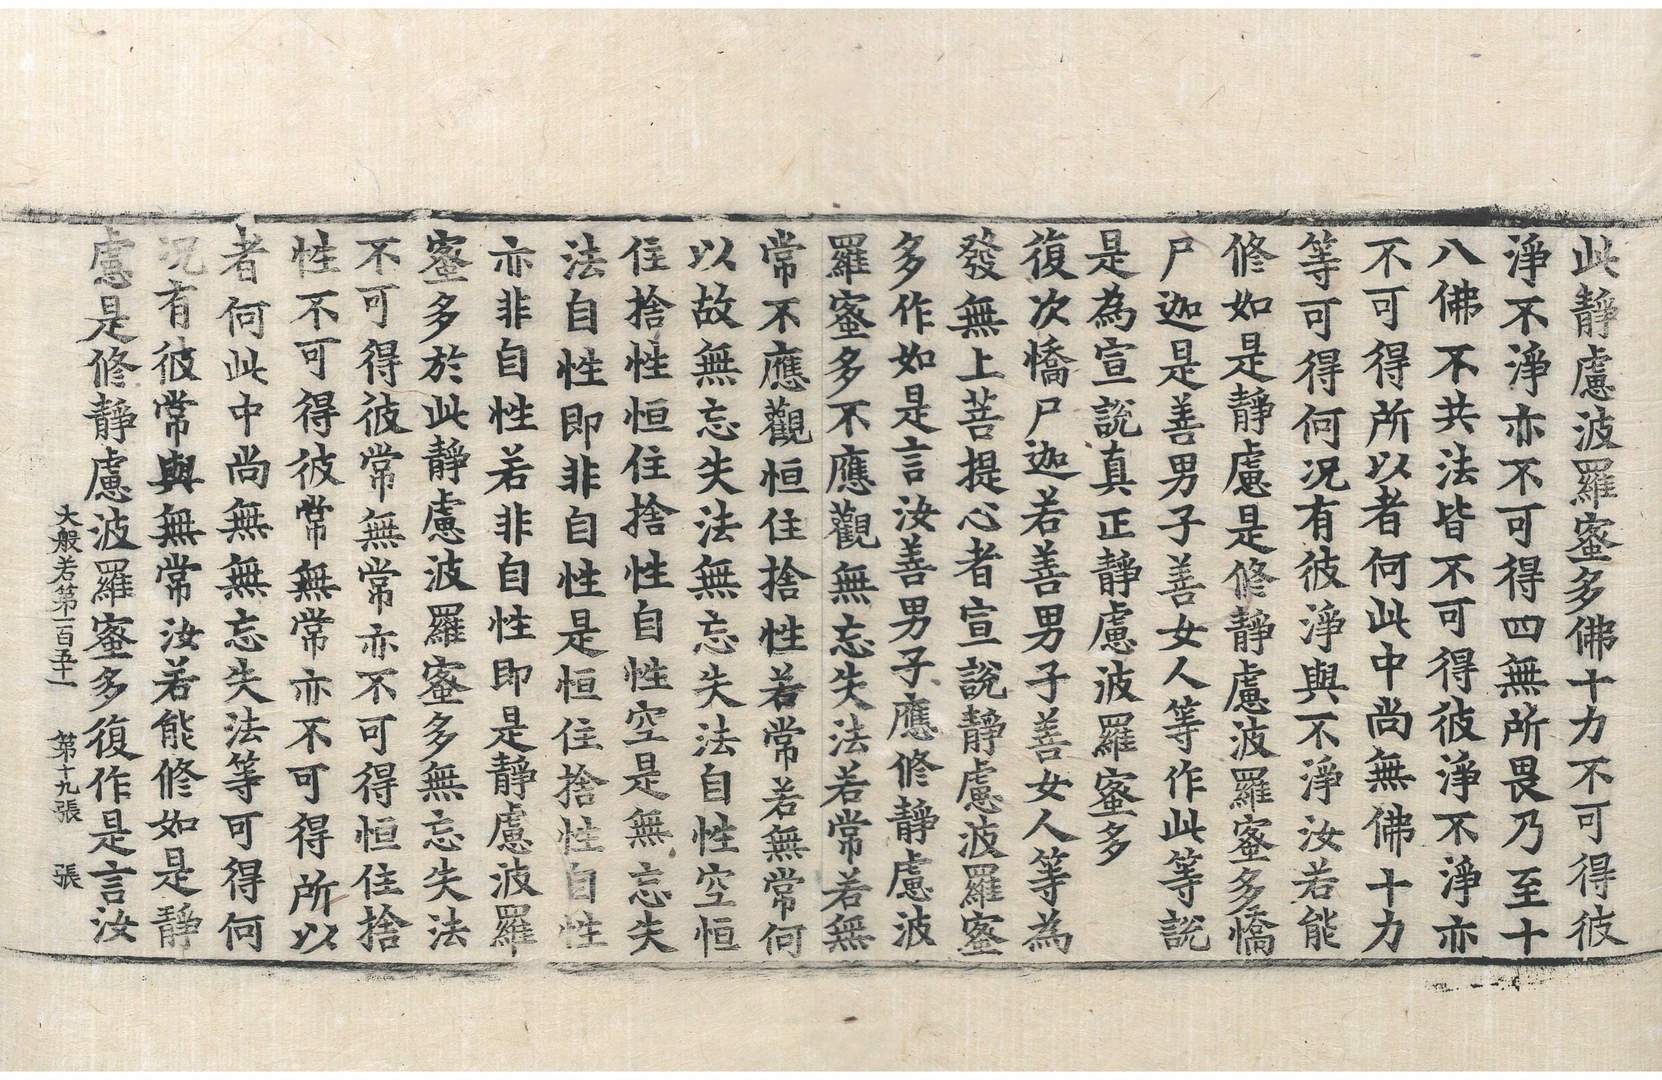 此靜慮波羅蜜多佛十力不可得彼
淨不淨亦不可得四無所畏乃至十
八佛不共法皆不可得彼淨不淨亦
不可得所以者何此中尚無佛十力
等可得何况有彼淨與不淨汝若能
修如是靜慮是修靜慮波羅蜜多憍
尸迦是善男子善女人等作此等說
是為宣說真正靜慮波羅蜜多
復次憍尸迦若善男子善女人等為
發無上菩提心者宣說靜慮波羅蜜
多作如是言汝善男子應修靜慮波
羅蜜多不應觀無忘失法若常若無
常不應觀恒住捨性若常若無常何
以故無忘失法無忘失法自性空恒
住捨性恒住捨性自性空是無忘失
法自性即非自性是恒住捨性自性
亦非自性若非自性即是靜慮波羅
蜜多於此靜慮波羅蜜多無忘失法
不可得彼常無常亦不可得恒住捨
性不可得彼常無常亦不可得所以
者何此中尚無無忘失法等可得何
况有彼常與無常汝若能修如是靜
慮是修靜慮波羅蜜多復作是言汝
大般若第一百五十一 第十九張 張